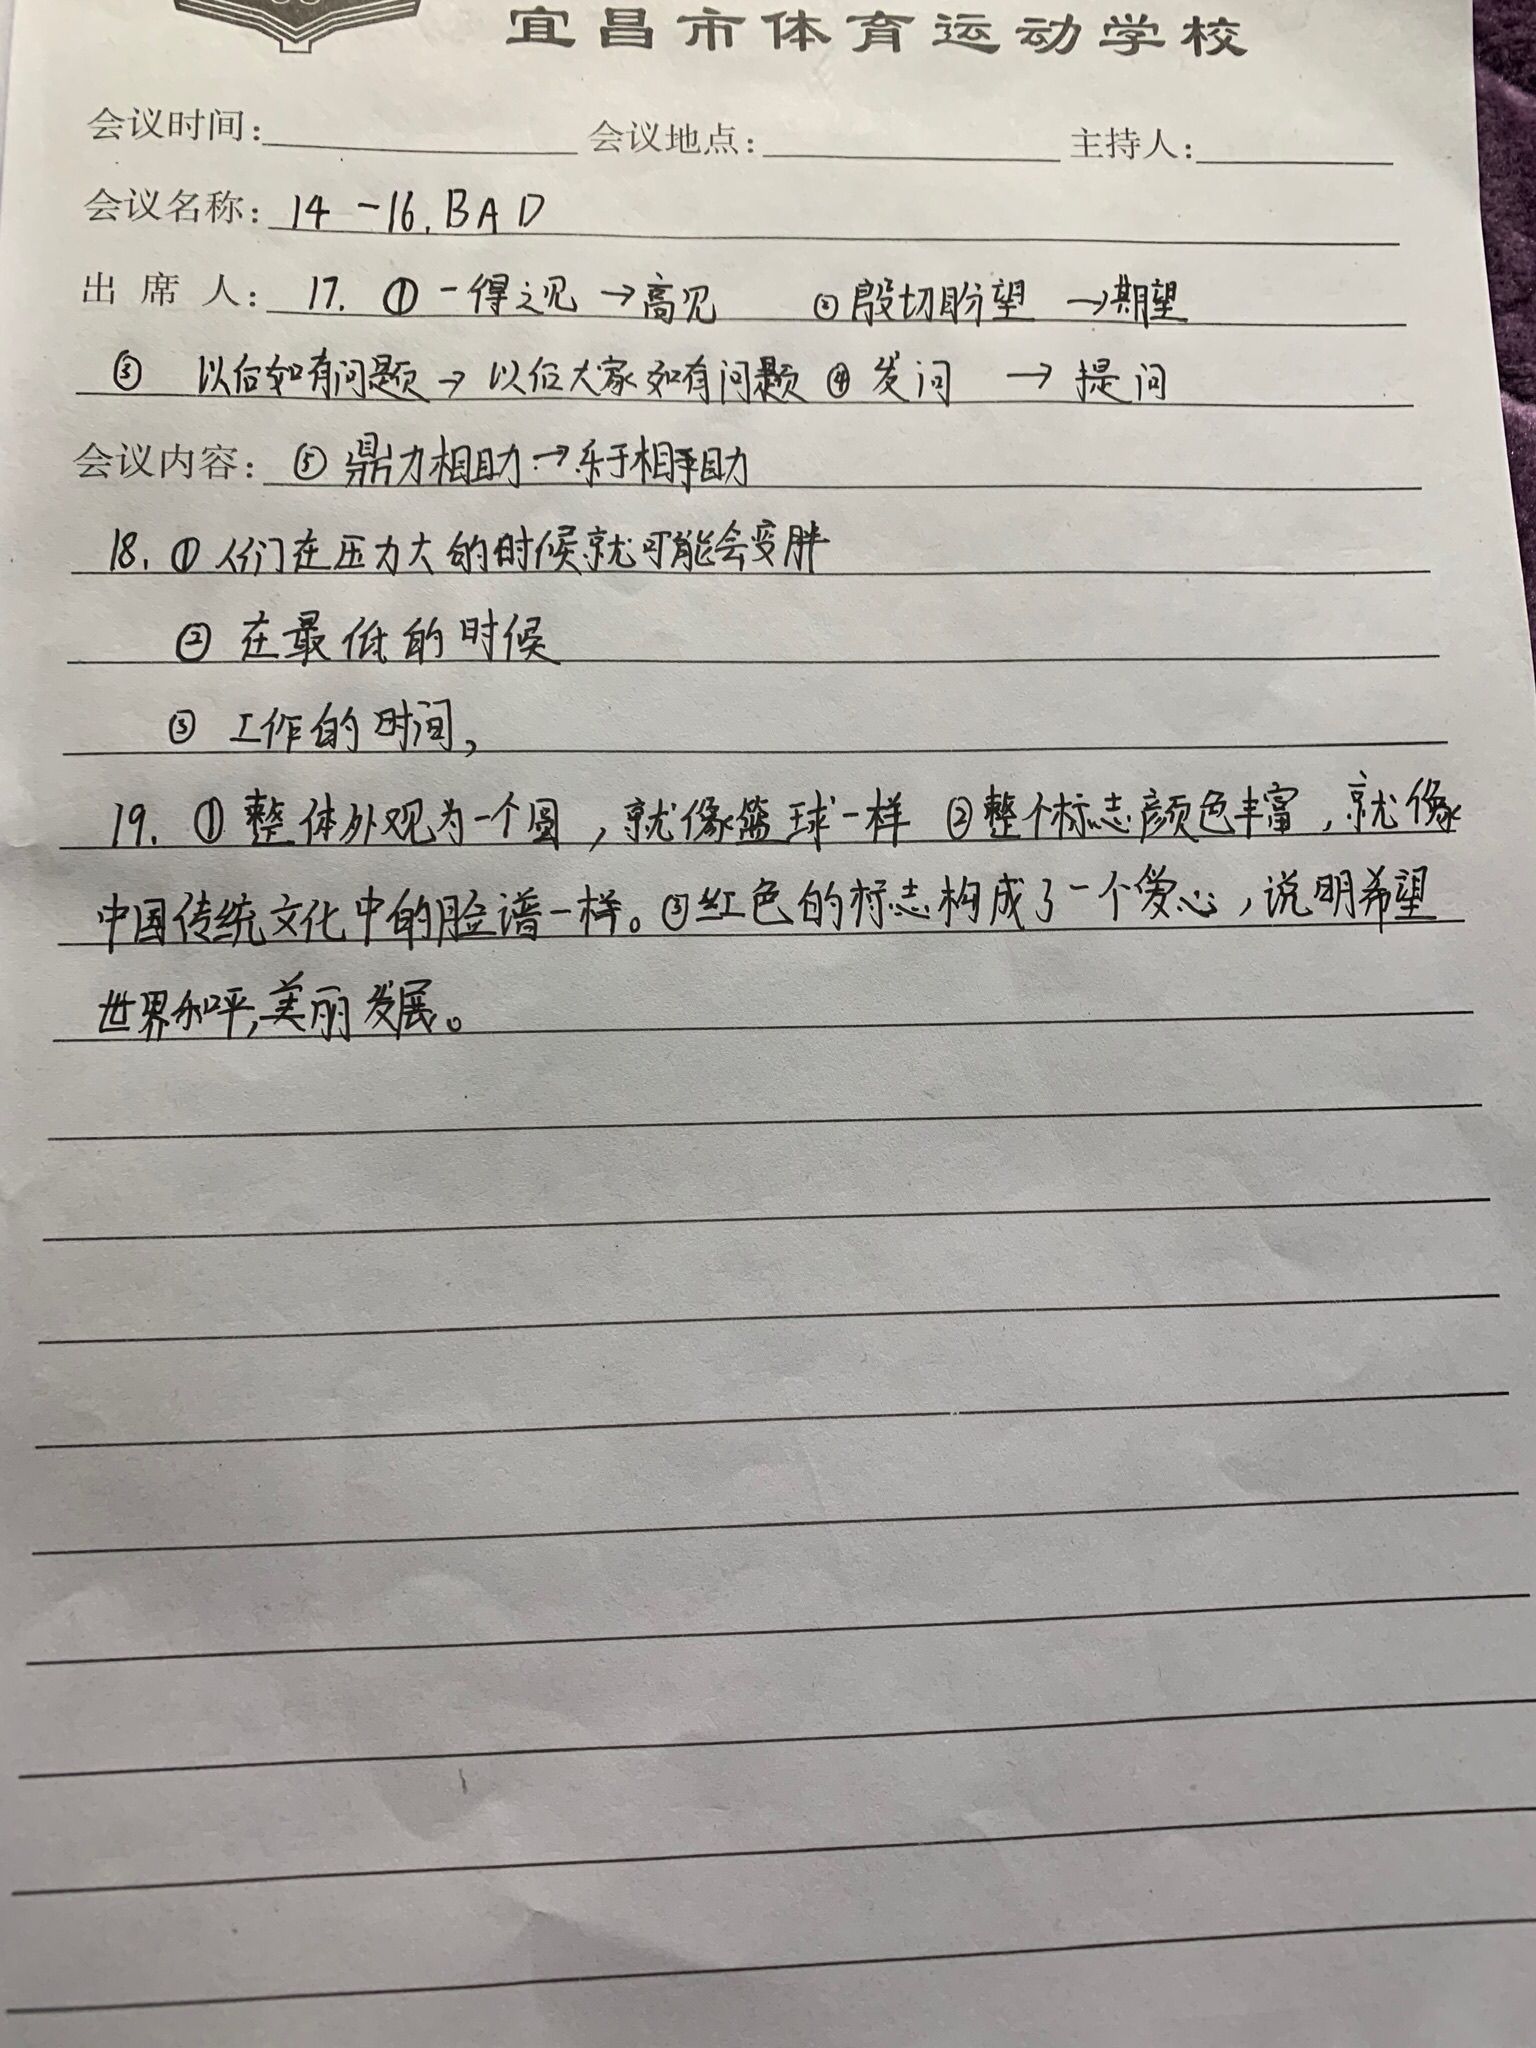 宜昌市体育运动学校
会议时间: 会议地点: 主持人:
会议名称: 14-16. BAD
出席人: 17. ① 一得之见→高见 ②殷切盼望→期望
③ 以后如有问题→以后大家如有问题 ④ 发问→提问
会议内容: ⑤ 鼎力相助→乐于相助
18. ① 人们在压力大的时候就可能会变胖
② 在最低的时候
③ 工作的时间,
19. ① 整体外观为一个圆,就像篮球一样 ②整个标志颜色丰富,就像
中国传统文化中的脸谱一样。③红色的标志构成了一个爱心,说明希望
世界和平,美丽发展。